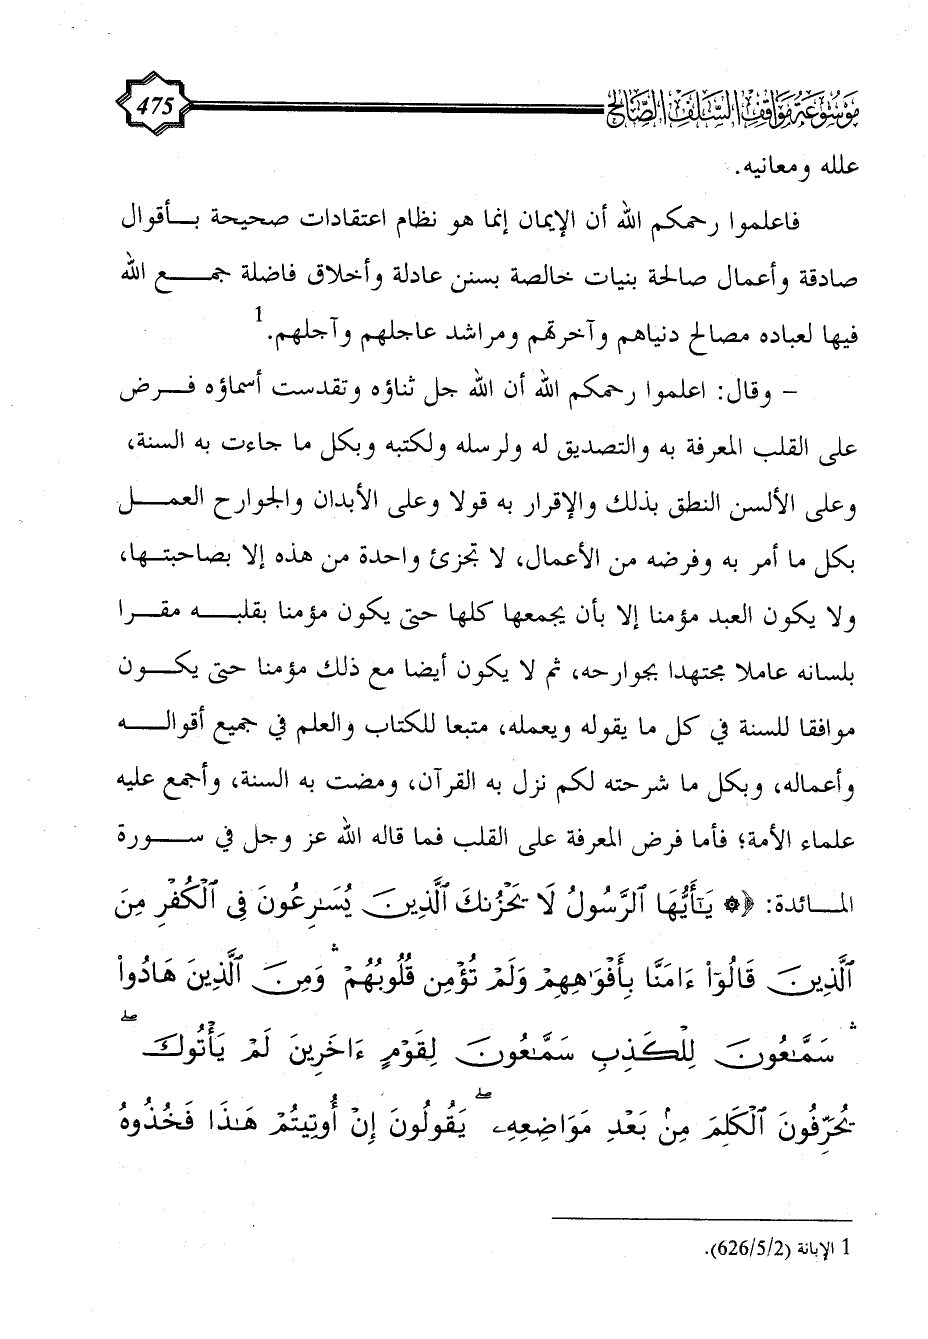 موسوعة مواقف السلف الصالح
475
علله ومعانيه.
فاعلموا رحمكم الله أن الإيمان إنما هو نظام اعتقادات صحيحة بأقوال
صادقة وأعمال صالحة بنيات خالصة بسنن عادلة وأخلاق فاضلة جمع الله
فيها لعباده مصالح دنياهم وآخرتهم ومراشد عاجلهم وآجلهم.1
– وقال: اعلموا رحمكم الله أن الله جل ثناؤه وتقدست أسماؤه فرض
على القلب المعرفة به والتصديق له ولرسله ولكتبه وبكل ما جاءت به السنة،
وعلى الألسن النطق بذلك والإقرار به قولا وعلى الأبدان والجوارح العمل
بكل ما أمر به وفرضه من الأعمال، لا تجزئ واحدة من هذه إلا بصاحبتها،
ولا يكون العبد مؤمنا إلا بأن يجمعها كلها حتى يكون مؤمنا بقلبه مقرا
بلسانه عاملا مجتهدا بجوارحه، ثم لا يكون أيضا مع ذلك مؤمنا حتى يكون
موافقا للسنة في كل ما يقوله ويعمله، متبعا للكتاب والعلم في جميع أقواله
وأعماله، وبكل ما شرحته لكم نزل به القرآن، ومضت به السنة، وأجمع عليه
علماء الأمة؛ فأما فرض المعرفة على القلب فما قاله الله عز وجل في سورة
المائدة: ﴿۞ يَٰٓأَيُّهَا ٱلرَّسُولُ لَا يَحْزُنكَ ٱلَّذِينَ يُسَٰرِعُونَ فِى ٱلْكُفْرِ مِنَ
ٱلَّذِينَ قَالُوٓا۟ ءَامَنَّا بِأَفْوَٰهِهِمْ وَلَمْ تُؤْمِن قُلُوبُهُمْ ۛ وَمِنَ ٱلَّذِينَ هَادُوا۟
ۛ سَمَّٰعُونَ لِلْكَذِبِ سَمَّٰعُونَ لِقَوْمٍ ءَاخَرِينَ لَمْ يَأْتُوكَ ۖ
يُحَرِّفُونَ ٱلْكَلِمَ مِنۢ بَعْدِ مَوَاضِعِهِۦ ۖ يَقُولُونَ إِنْ أُوتِيتُمْ هَٰذَا فَخُذُوهُ
1 الإبانة (626/5/2).